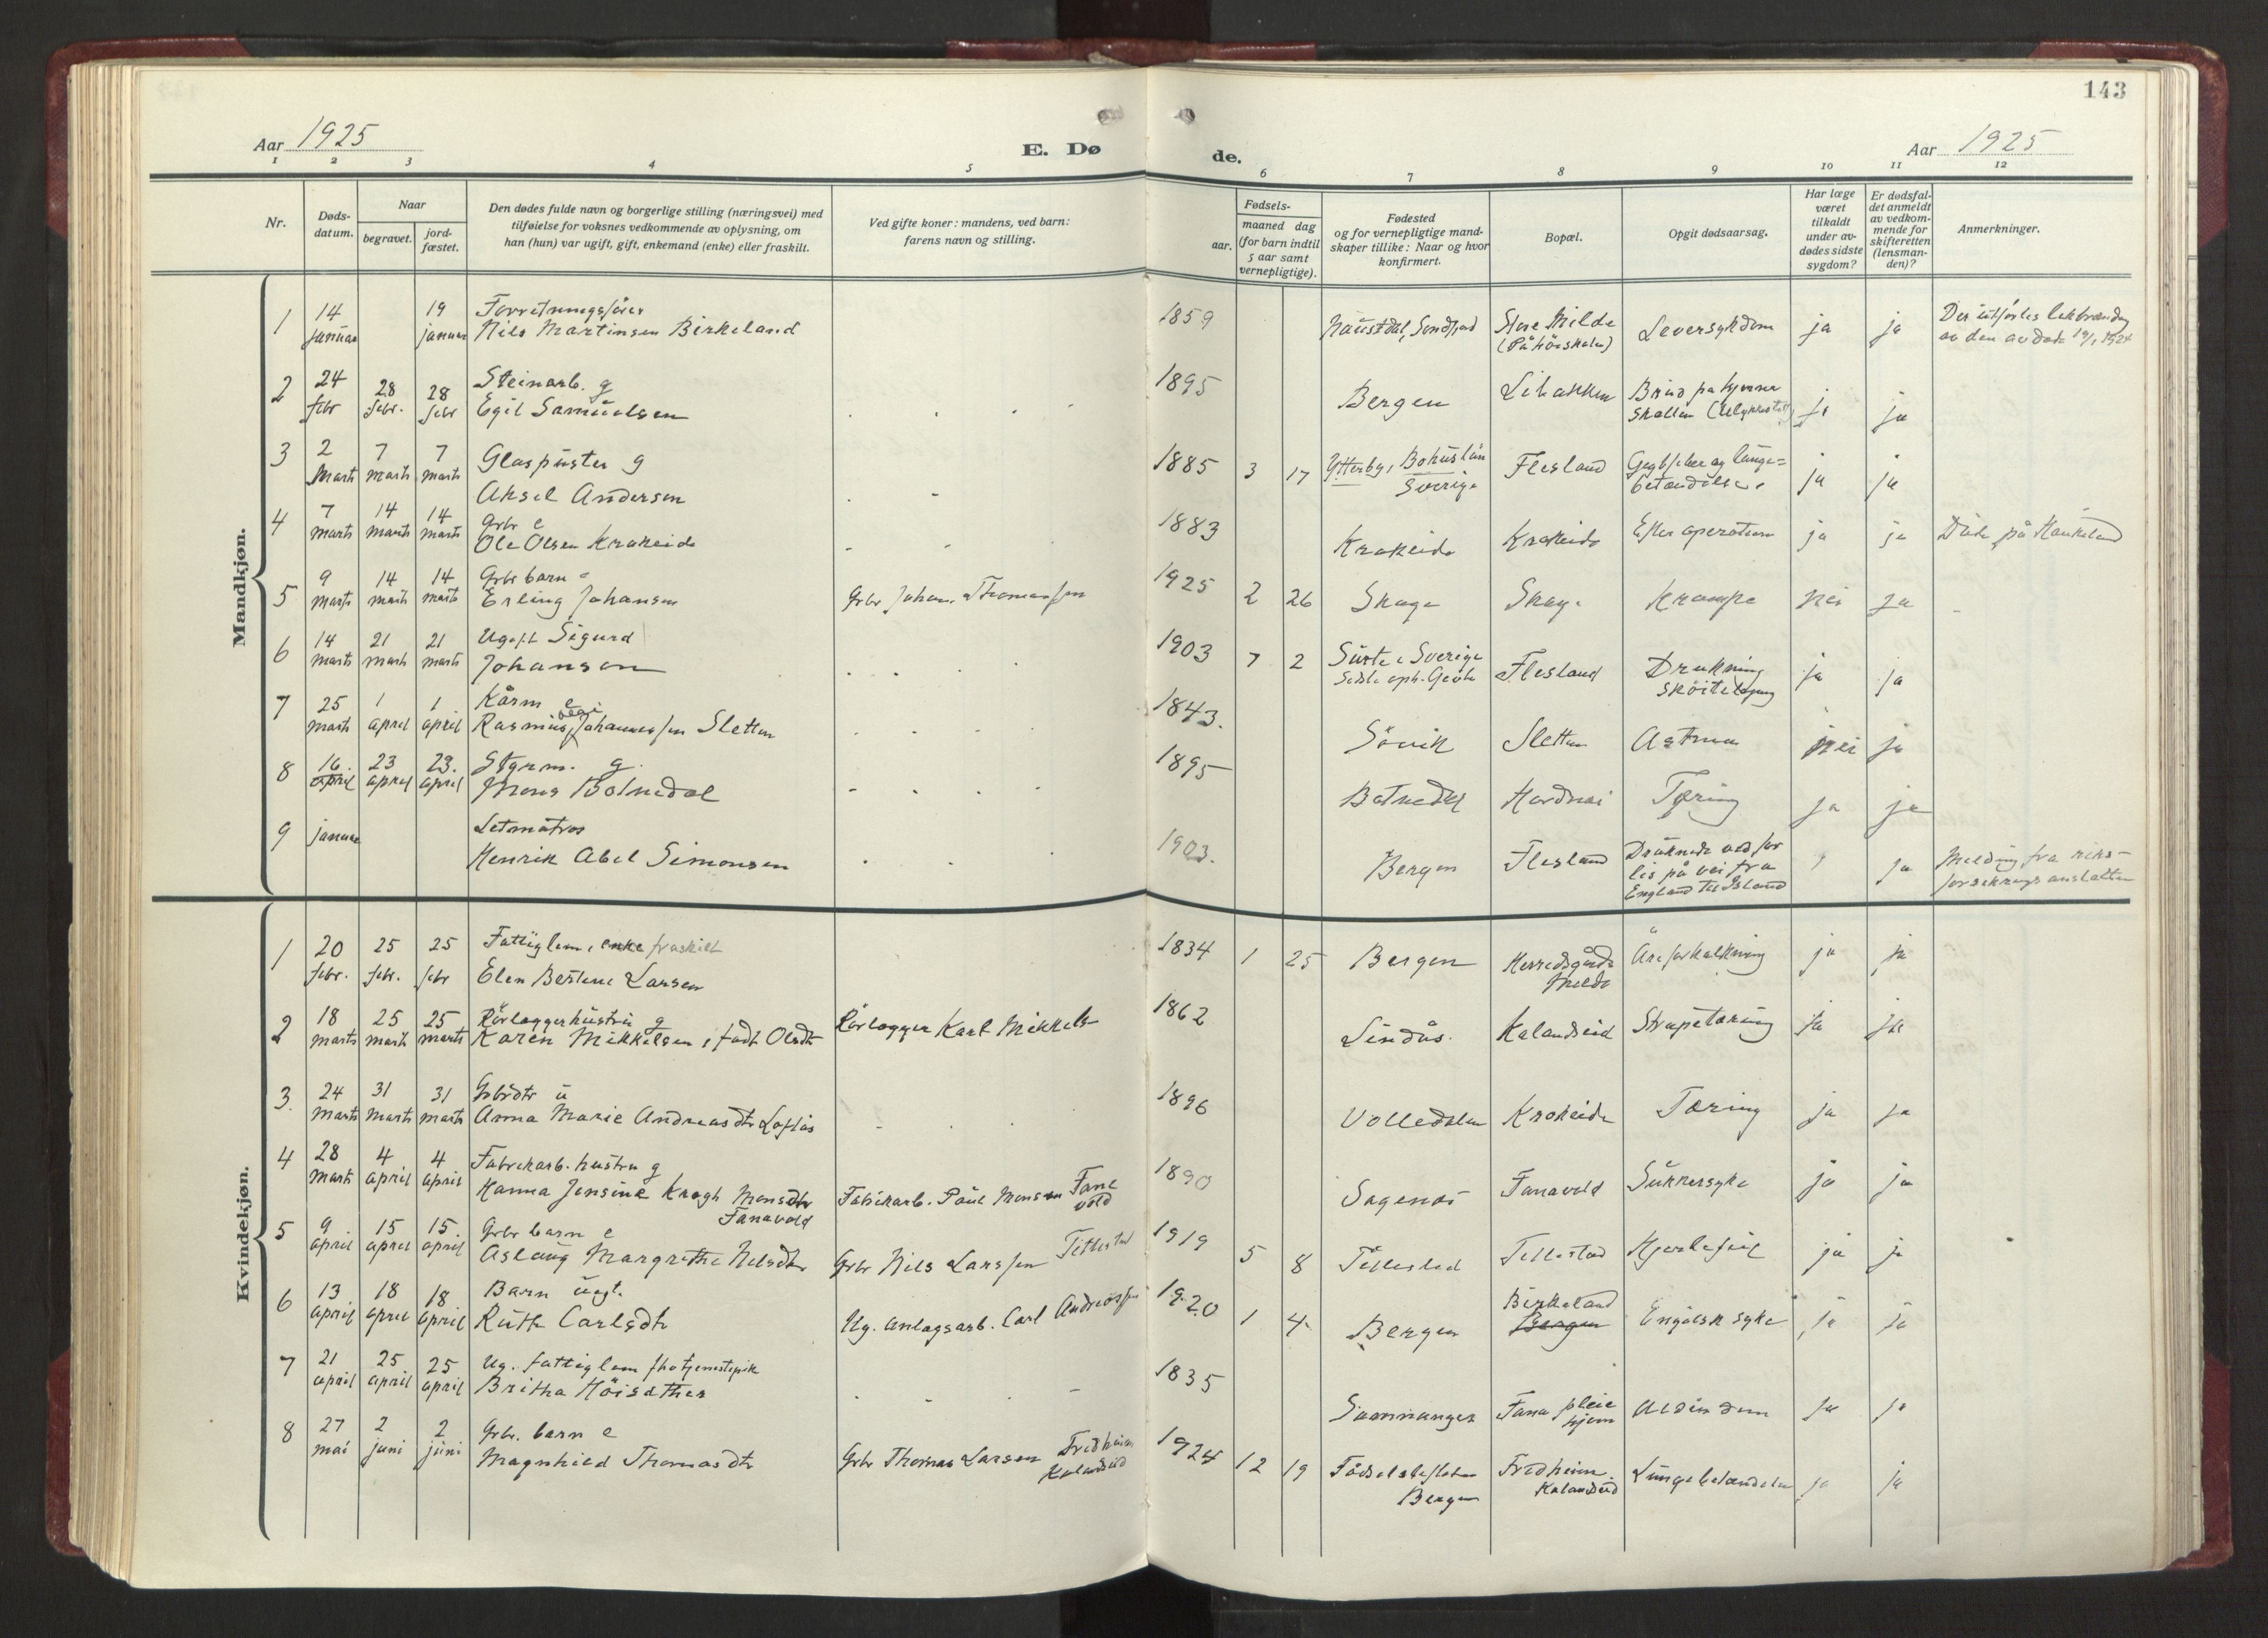 143
Aar 1925
E. Dø
de.
Aar 1925
1 2 3 4 5 6 7 8 9 10 11 12
Nr.
Døds-
datum.
Naar
begravet.
jord-
fæstet.
Den dødes fulde navn og borgerlige stilling (næringsvei) med
tilføielse for voksnes vedkommende av oplysning, om
han (hun) var ugift, gift, enkemand (enke) eller fraskilt.
Ved gifte koner: mandens, ved barn:
farens navn og stilling.
Fødsels-
aar.
maaned dag
(for barn indtil
5 aar samt
vernepligtige).
Fødested
og for vernepligtige mand-
skaper tillike: Naar og hvor
konfirmert.
Bopæl.
Opgit dødsaarsag.
Har læge
været
tilkaldt
under av-
dødes sidste
sygdom?
Er dødsfal-
det anmeldt
av vedkom-
mende for
skifteretten
(lensman-
den)?
Anmerkninger.
Mandkjøn.
1 14 19 Forretningsfører 1859 Naustdal, Sondfjord Store Milde Leversykdom ja ja Der utførtes likbrænding
januar januar Nils Martinsen Birkeland av den avdøde 19/1 1924
2 24 28 28 Steinarb. g 1895 Bergen Brud på hjerne ja
febr febr. febr Egil Samuelsen skallen
3 2 7 7 Glaspuster g 1885 3 17 Ytterby, Bohuslän Flesland og lunge= ja ja
marts marts marts Aksel Andersen Sverige betændelse
4 7 14 14 Grbr e 1883 Krokeide Krokeide Efter operation ja ja Døde på Haukeland
marts marts marts Ole Olsen Krokeide
5 9 14 14 Grbr barn e Grbr Johan Thomassen 1925 2 26 Skage Skage Krampe nei ja
marts marts marts Erling Johansen
6 14 21 21 Ugift Sigurd 1903 7 2 Surte i Sverige Flesland Drukning ja ja
marts marts marts Johanson skøiteløping
7 25 1 1 Kårm e 1843. Søvik Sletten Astma nei ja
marts april april Rasmus Johannessen Sletten
8 16. 23 23. Styrm. g. 1895 Botnedal Hordnæs Tæring ja ja
april april april Mons Botnedal
9 januar Letmatros 1903. Bergen Flesland Druknede ved for ja Melding fra riks-
Henrik Abel Simonsen lis på vei fra forsikringsanstalten
England til Island
Kvindekjøn.
1 20 25 25 Fattiglem, enke fraskilt 1834 1 25 Bergen Herredsgården Åreforkalkning ja ja
febr. febr. febr Elen Bertine Larsen Milde
2 18 25 25 Rørlæggerhustru g Rørlægger Karl Mikkels- 1862 Lindås. Kalandseid Strupetæring ja ja
marts marts marts Karen Mikkelsen, født Olsdtr
3. 24 31 31 Grbrdtr u 1896 Volledalen Krokeide Tæring ja ja
marts marts marts Anna Marie Andreasdtr Loftås
4 28 4 4 Fabrikarb. hustru g Fabrikarb. Paul Monsen Fana 1890 Sagenæs Fanavold Sukkersyke ja ja
marts april april Hanna Jensine Krogh Monsdtr vold
Fanavold
5 9 15 15. Grbr barn e Grbr Nils Larssen Titlestad 1919 5 8 Titlestad Titlestad Hjertefeil ja ja
april april april. Aslaug Margrethe Nilsdtr
6 13 18 18 Barn uegt. Ug. anlægsarb. Carl Andreassen 1920 1 4 Bergen Birkeland Engelsk syke ja ja
april april april Ruth Carlsdtr Bergen
7 21 25 25 Ug. fattiglem fhv tjenestepik 1835 Samnanger Fana pleie Alderdom ja ja
april april april Britha Høisæther hjem
8 27 2 2 Grbr. barn e Grbr Thomas Larsen Fredheim 1924 12 19 Fødselsstiftelsen Fredheim Lungebetændelse ja ja
mai juni juni Magnhild Thomasdtr Kalandseid Bergen Kalandseid